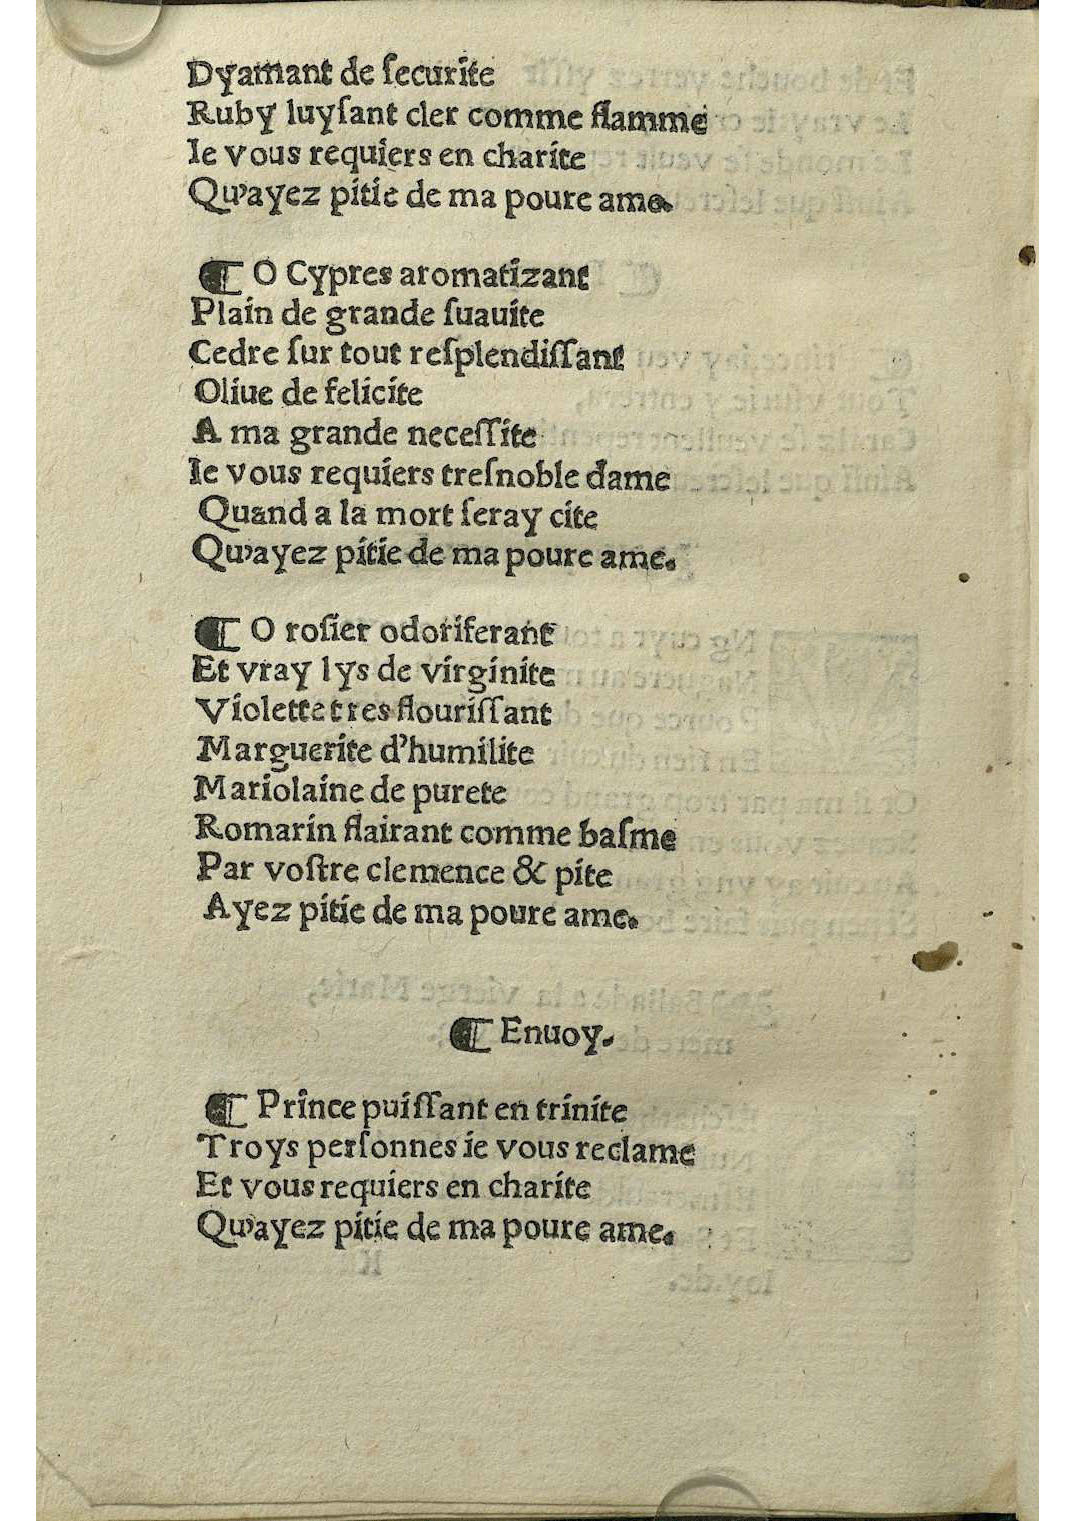 Dyamant de ſecurite
Ruby luyſant cler comme flamme
Ie vous requiers en charite
Qu'ayez pitie de ma poure ame.
¶ O Cypres aromatizant
Plain de grande ſuauite
Cedre ſur tout reſplendiſſant
Oliue de felicite
A ma grande neceſſite
Ie vous requiers treſnoble dame
Quand a la mort ſeray cite
Qu'ayez pitie de ma poure ame.
¶ O roſier odoriferant
Et vray lys de virginite
Violette tres flouriſſant
Marguerite d'humilite
Mariolaine de purete
Romarin flairant comme baſme
Par voſtre clemence & pite
Ayez pitie de ma poure ame.
¶ Enuoy.
¶ Prince puiſſant en trinite
Troys perſonnes ie vous reclame
Et vous requiers en charite
Qu'ayez pitie de ma poure ame.